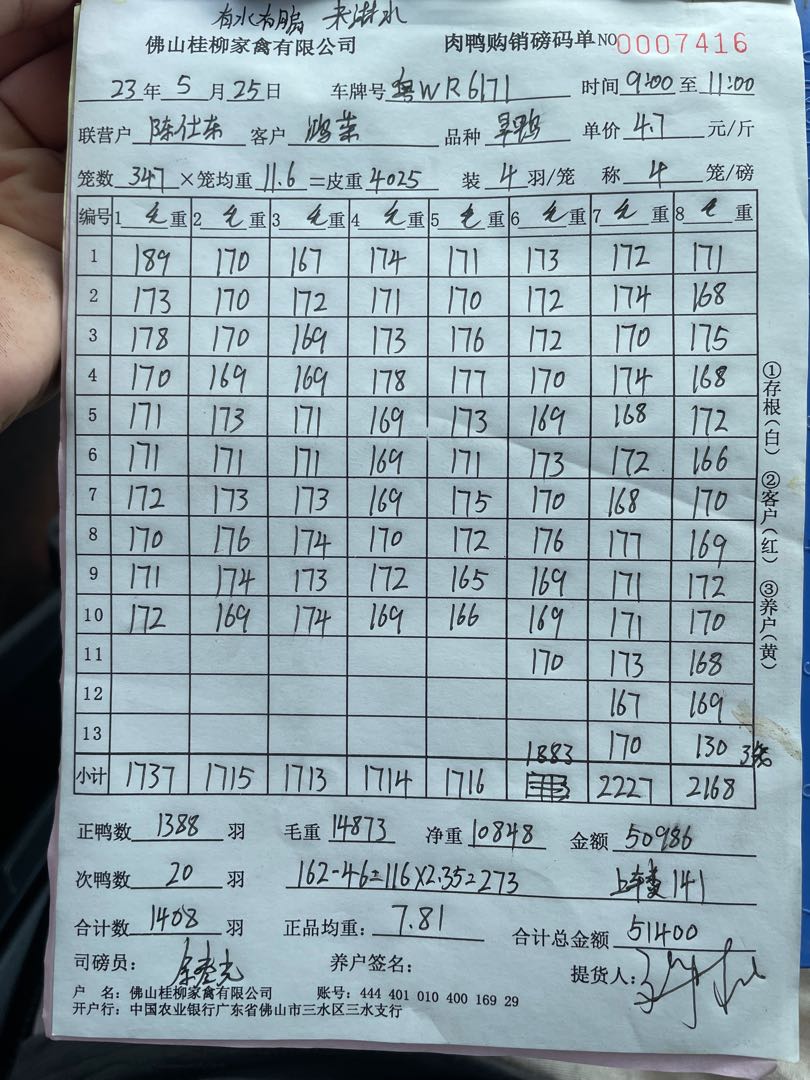 有水有扁 未淋水
佛山桂柳家禽有限公司 肉鸭购销磅码单 NO 0007416
23 年 5 月 25 日 车牌号 粤WR6171 时间 9:00 至 11:00
联营户 陈仕东 客户 鸿荣 品种 旱鸭 单价 4.7 元/斤
笼数 347 ×笼均重 11.6 =皮重 4025 装 4 羽/笼 称 4 笼/磅
编号 1 毛 重 2 毛 重 3 毛 重 4 毛 重 5 毛 重 6 毛 重 7 毛 重 8 毛 重
1 189 170 167 174 171 173 172 171
2 173 170 172 171 170 172 174 168
3 178 170 169 173 176 172 170 175
4 170 169 169 178 177 170 174 168
5 171 173 171 169 173 169 168 172
6 171 171 171 169 171 173 172 166
7 172 173 173 169 175 170 168 170
8 170 176 174 170 172 176 177 169
9 171 174 173 172 165 169 171 172
10 172 169 174 169 166 169 171 170
11 170 173 168
12 167 169
13 170 130 3笼
小计 1737 1715 1713 1714 1716 1883 2227 2168
正鸭数 1388 羽 毛重 14873 净重 10848 金额 50986
次鸭数 20 羽 162-46=116×2.35=273 上车费 141
合计数 1408 羽 正品均重: 7.81 合计总金额 51400
司磅员: 养户签名: 提货人:
户 名: 佛山桂柳家禽有限公司 账号: 444 401 010 400 169 29
开户行: 中国农业银行广东省佛山市三水区三水支行
①存根(白) ②客户(红) ③养户(黄)